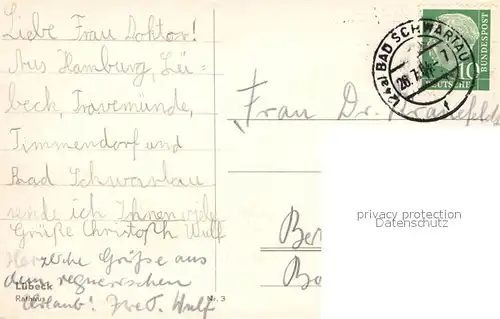 Liebe Frau Doktor!
Aus Hamburg, Lü-
beck, Travemünde,
Timmendorf und
Bad Schwartau
sende ich Ihnen viele
Grüße Christoph Wulf
Herzliche Grüße aus
dem regnerischen
Urlaub! Ihre T. Wulf
Lübeck
Rathaus
Nr. 3
(24a) BAD SCHWARTAU 1
26.7.
f
10
DEUTSCHE
BUNDESPOST
Frau Dr.
Ber
Ba
privacy protection
www.ansichtskartenversand.com